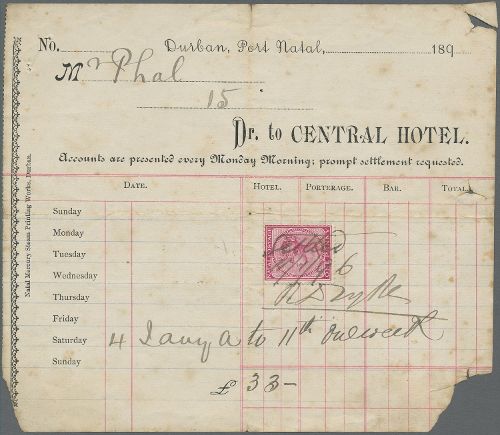 No. Durban, Port Natal, 189
Mr Phal
15
Dr. to CENTRAL HOTEL.
Accounts are presented every Monday Morning; prompt settlement requested.
DATE. HOTEL. PORTERAGE. BAR. TOTAL.
Sunday
Monday
Tuesday
Wednesday
Thursday
Friday
Saturday 4 to 11th
Sunday
£ 33-
Natal Mercury Steam Printing Works, Durban.
Settled